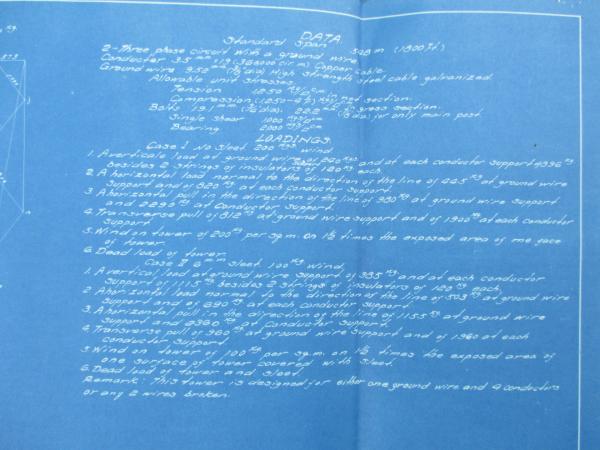 DATA
Standard Span 548 m (1800 ft.)
2-Three phase circuit with a ground wire
Conductor 3.5 mm × 19 (366000 cir m) Copper cable.
Ground wire 9.52 mm (3/8" dia) High strength steel cable galvanized.
Allowable unit stresses.
Tension 1250 Kg/□cm in net section.
Compression (1250-4 l/r) Kg/□cm in gross section.
Bolts 19.1 mm (3/4" dia). 22.2 mm (7/8" dia) for only main post.
Single shear 1000 Kg/□cm
Bearing 2000 Kg/□cm
LOADINGS.
Case I No Sleet 200 Kg wind
1. A verticale load at ground wire of 240 Kgs and at each conductor support of 996 Kg
besides 2 strings of insulators of 120 Kg each.
2. A horizontal load normal to the direction of the line of 445 Kg at ground wire
support and of 920 Kg at each conductor support.
3. A horizontal pull in the direction of the line of 980 Kg at ground wire support
and 2295 Kg at Conductor support.
4. Transverse pull of 812 Kg at ground wire support and of 1900 Kg at each conductor
support.
5. Wind on tower of 200 Kg per sq.m. on 1½ times the exposed area of one face
of tower.
6. Dead load of tower
Case II 6 mm Sleet 100 Kg Wind.
1. A vertical load at ground wire support of 335 Kg and at each conductor
support of 1115 Kg besides 2 strings of insulators of 120 Kg each,
2. A horizontal load normal to the direction of the line of 503 Kg at ground wire
support and of 890 Kg at each conductor support.
3. A horizontal pull in the direction of the line of 1155 Kg at ground wire
support and 2360 Kg at Conductor support.
4. Transverse pull of 960 Kg at ground wire support and of 1960 at each
conductor support.
5. Wind on tower of 100 Kg per sq.m. on 1½ times the exposed area of
one surface of tower covered with sleet.
6. Dead load of tower and sleet.
Remark: This tower is designed for either one ground wire and 4 conductors
or any 2 wires broken.